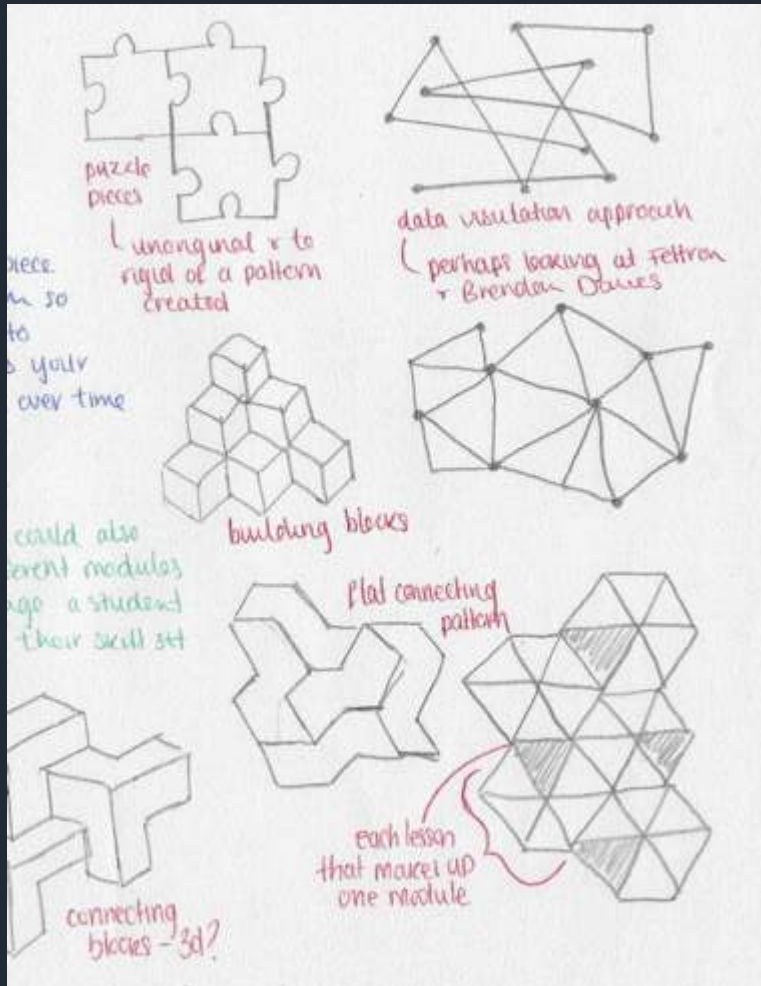 puzzle
pieces
unoriginal + to
rigid of a pattern
created
data visulation approach
perhaps looking at Feltron
+ Brendan Dawes
piece
so
to
your
over time
building blocks
could also
modules
a student
their skill set
flat connecting
pattern
each lesson
that makes up
one module
connecting
blocks - 3d?